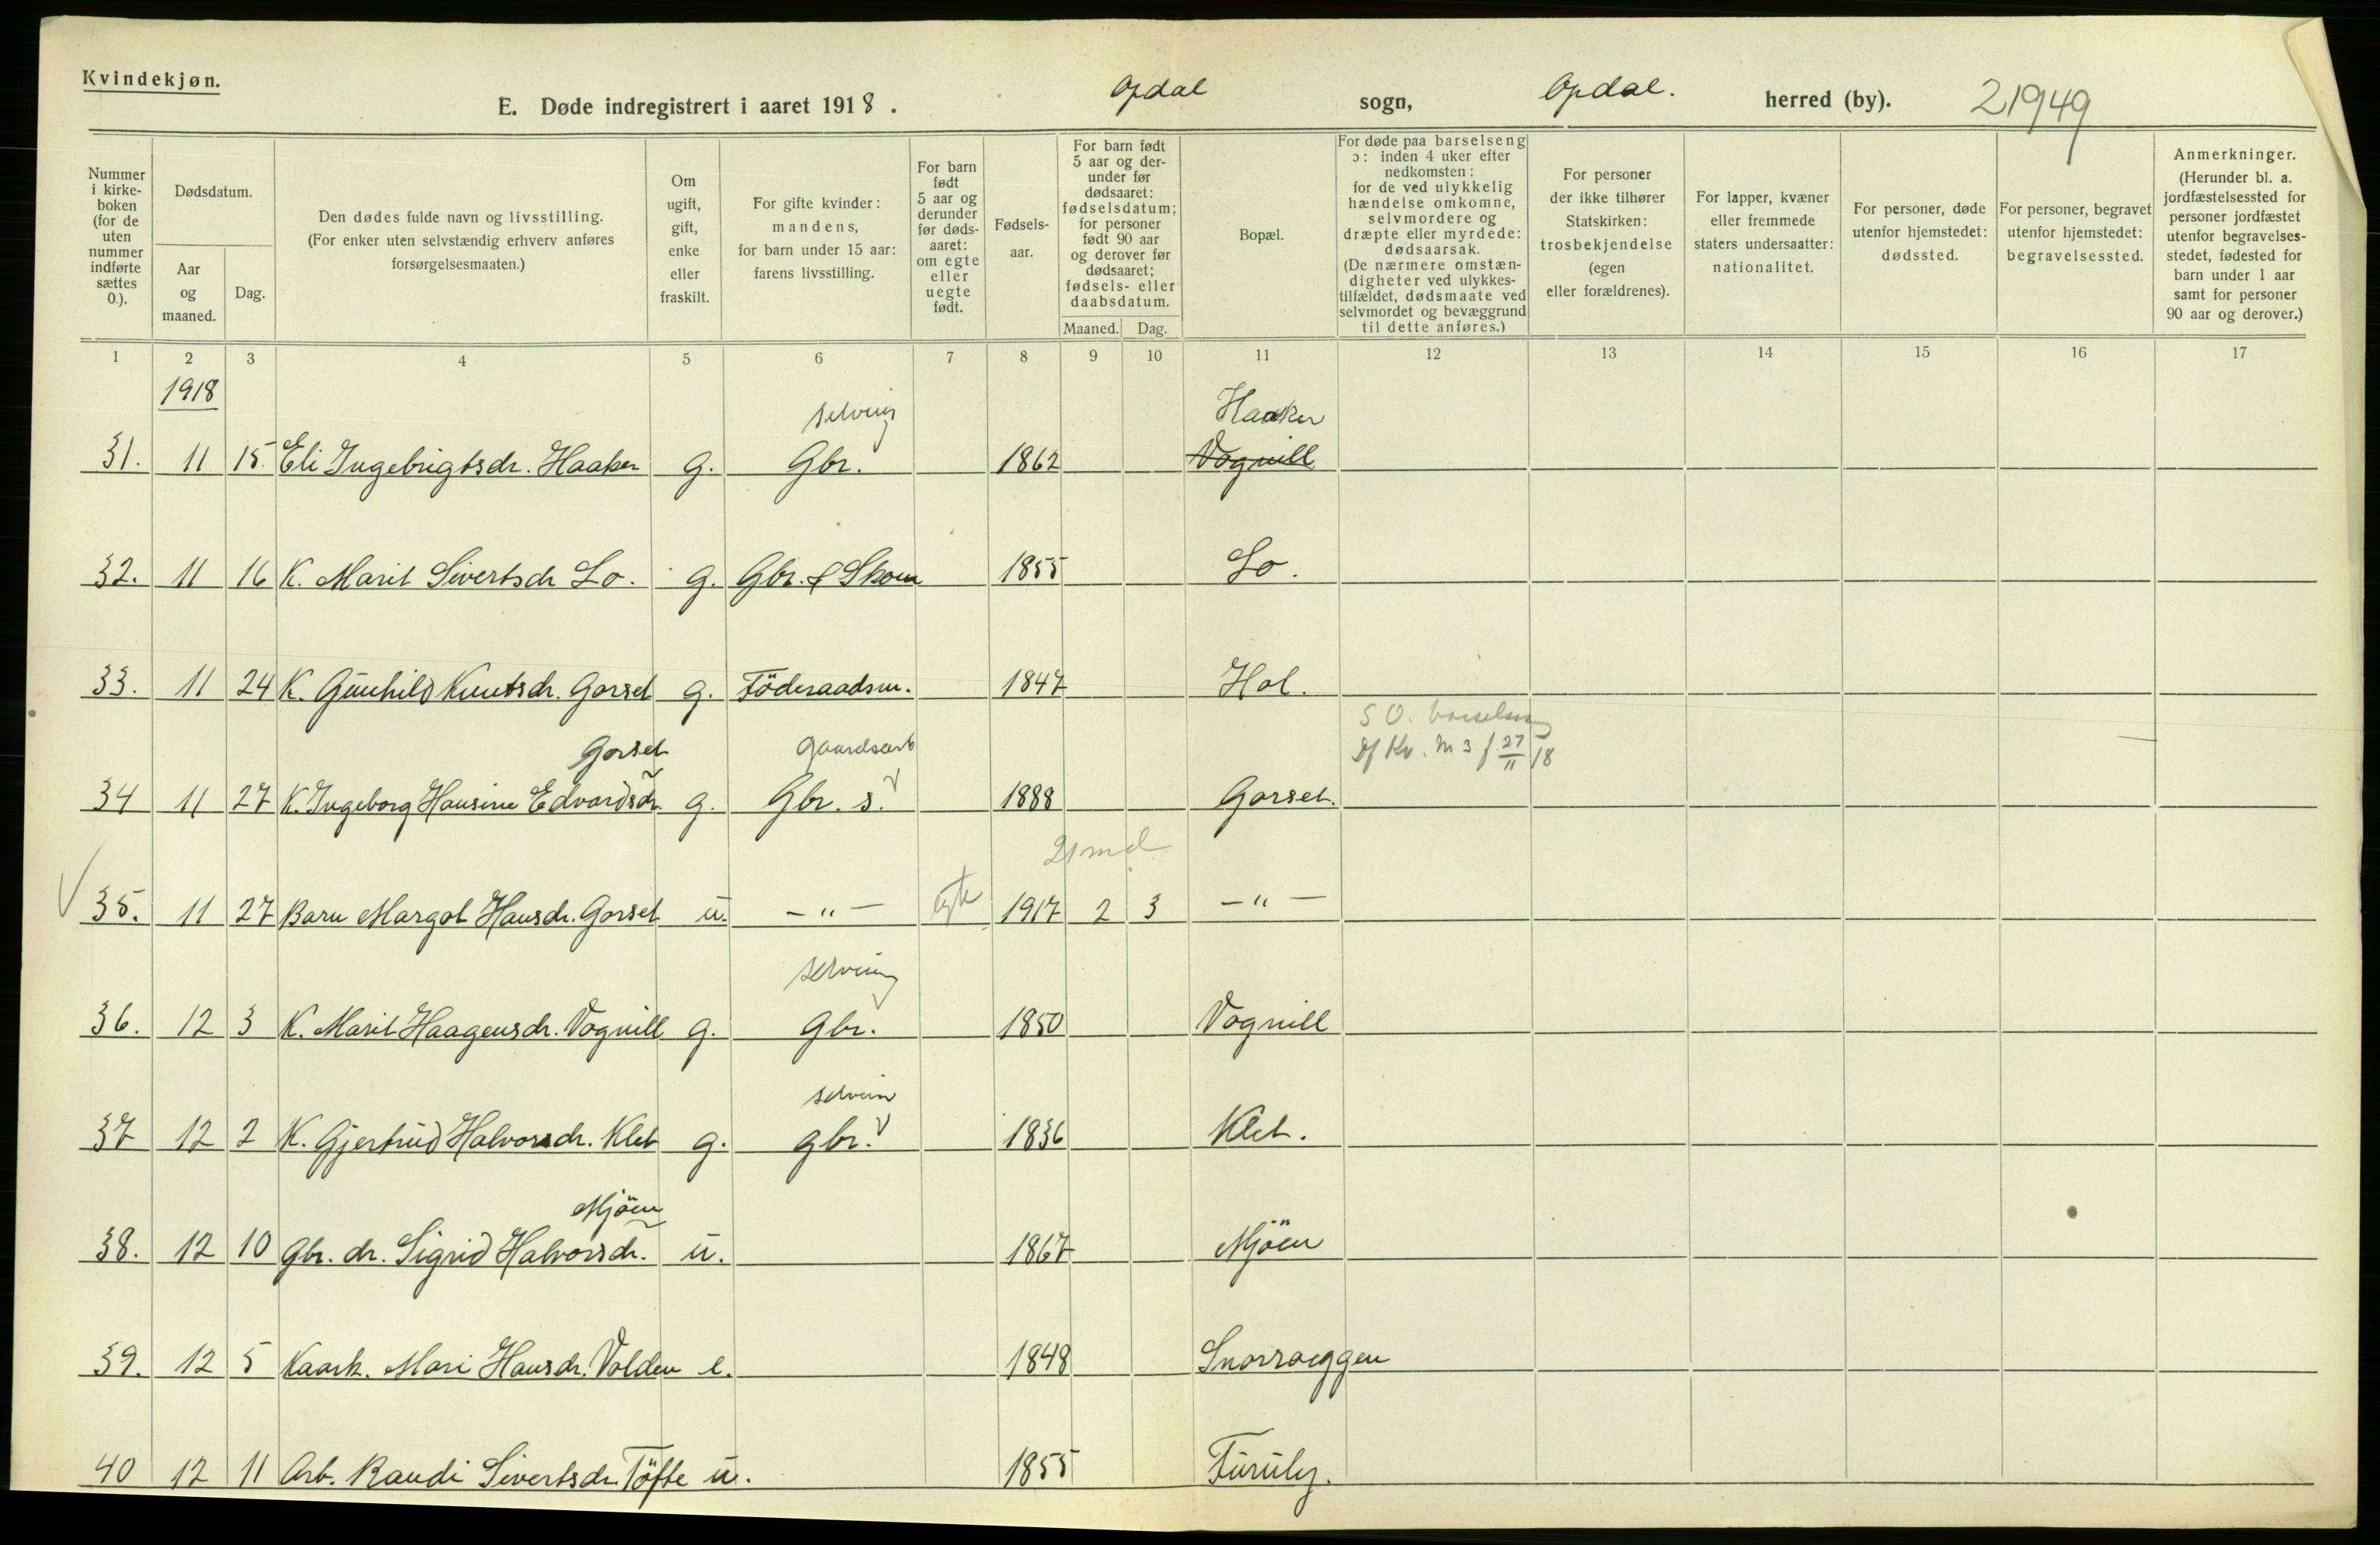 Kvindekjøn.
E. Døde indregistrert i aaret 1918. Opdal sogn, Opdal. herred (by). 21949
Nummer i kirke- boken (for de uten nummer indførte sættes 0.).
Dødsdatum.
Aar og maaned.
Dag.
Den dødes fulde navn og livsstilling.
(For enker uten selvstændig erhverv anføres forsørgelsesmaaten.)
Om ugift, gift, enke eller fraskilt.
For gifte kvinder: mandens, for barn under 15 aar: farens livsstilling.
For barn født 5 aar og derunder før døds- aaret: om egte eller uegte født.
Fødsels- aar.
For barn født 5 aar og der- under før dødsaaret: fødselsdatum; for personer født 90 aar og derover før dødsaaret; fødsels- eller daabsdatum.
Maaned. Dag.
Bopæl.
For døde paa barselseng ɔ: inden 4 uker efter nedkomsten: for de ved ulykkelig hændelse omkomne, selvmordere og dræpte eller myrdede: dødsaarsak. (De nærmere omstæn- digheter ved ulykkes- tilfældet, dødsmaate ved selvmordet og bevæggrund til dette anføres.)
For personer der ikke tilhører Statskirken: trosbekjendelse (egen eller forældrenes).
For lapper, kvæner eller fremmede staters undersaatter: nationalitet.
For personer, døde utenfor hjemstedet: dødssted.
For personer, begravet utenfor hjemstedet: begravelsessted.
Anmerkninger. (Herunder bl. a. jordfæstelsessted for personer jordfæstet utenfor begravelses- stedet, fødested for barn under 1 aar samt for personer 90 aar og derover.)
1 2 3 4 5 6 7 8 9 10 11 12 13 14 15 16 17
1918
selveier Haaker
31. 11 15. Eli Ingebrigtsdr. Haaker g. Gbr. 1862 Vognill
32. 11 16 K. Marit Sivertsdr Lo. g. Gbr. & Skom 1855 Lo.
33. 11 24 K. Gunhild Knutsdr. Gorset g. Föderaadsm. 1847 Hol.
S O. barselseng
Gorset gaardsarb Kv. № 3 f 27/11 18
34 11 27 K. Ingeborg Hansine Edvardsdr. g. Gbr. s. 1888 Gorset.
21 md
35. 11 27 Barn Margot Hansdr. Gorset u. -"- egte 1917 2 3 -"-
selveier
36. 12 3 K. Marit Haagensdr. Vognill g. Gbr. 1850 Vognill
selveier
37 12 2 K. Gjertrud Halvorsdr. Klet g. gbr. 1836 Klet.
Mjöen
38. 12 10 Gbr. dr. Sigrid Halvorsdr. u. 1867 Mjöen
39. 12 5 Kaark. Mari Hansdr. Volden e. 1848 Snorroeggen
40 12 11 Arb. Randi Sivertsdr. Töfte u. 1855 Furuly.